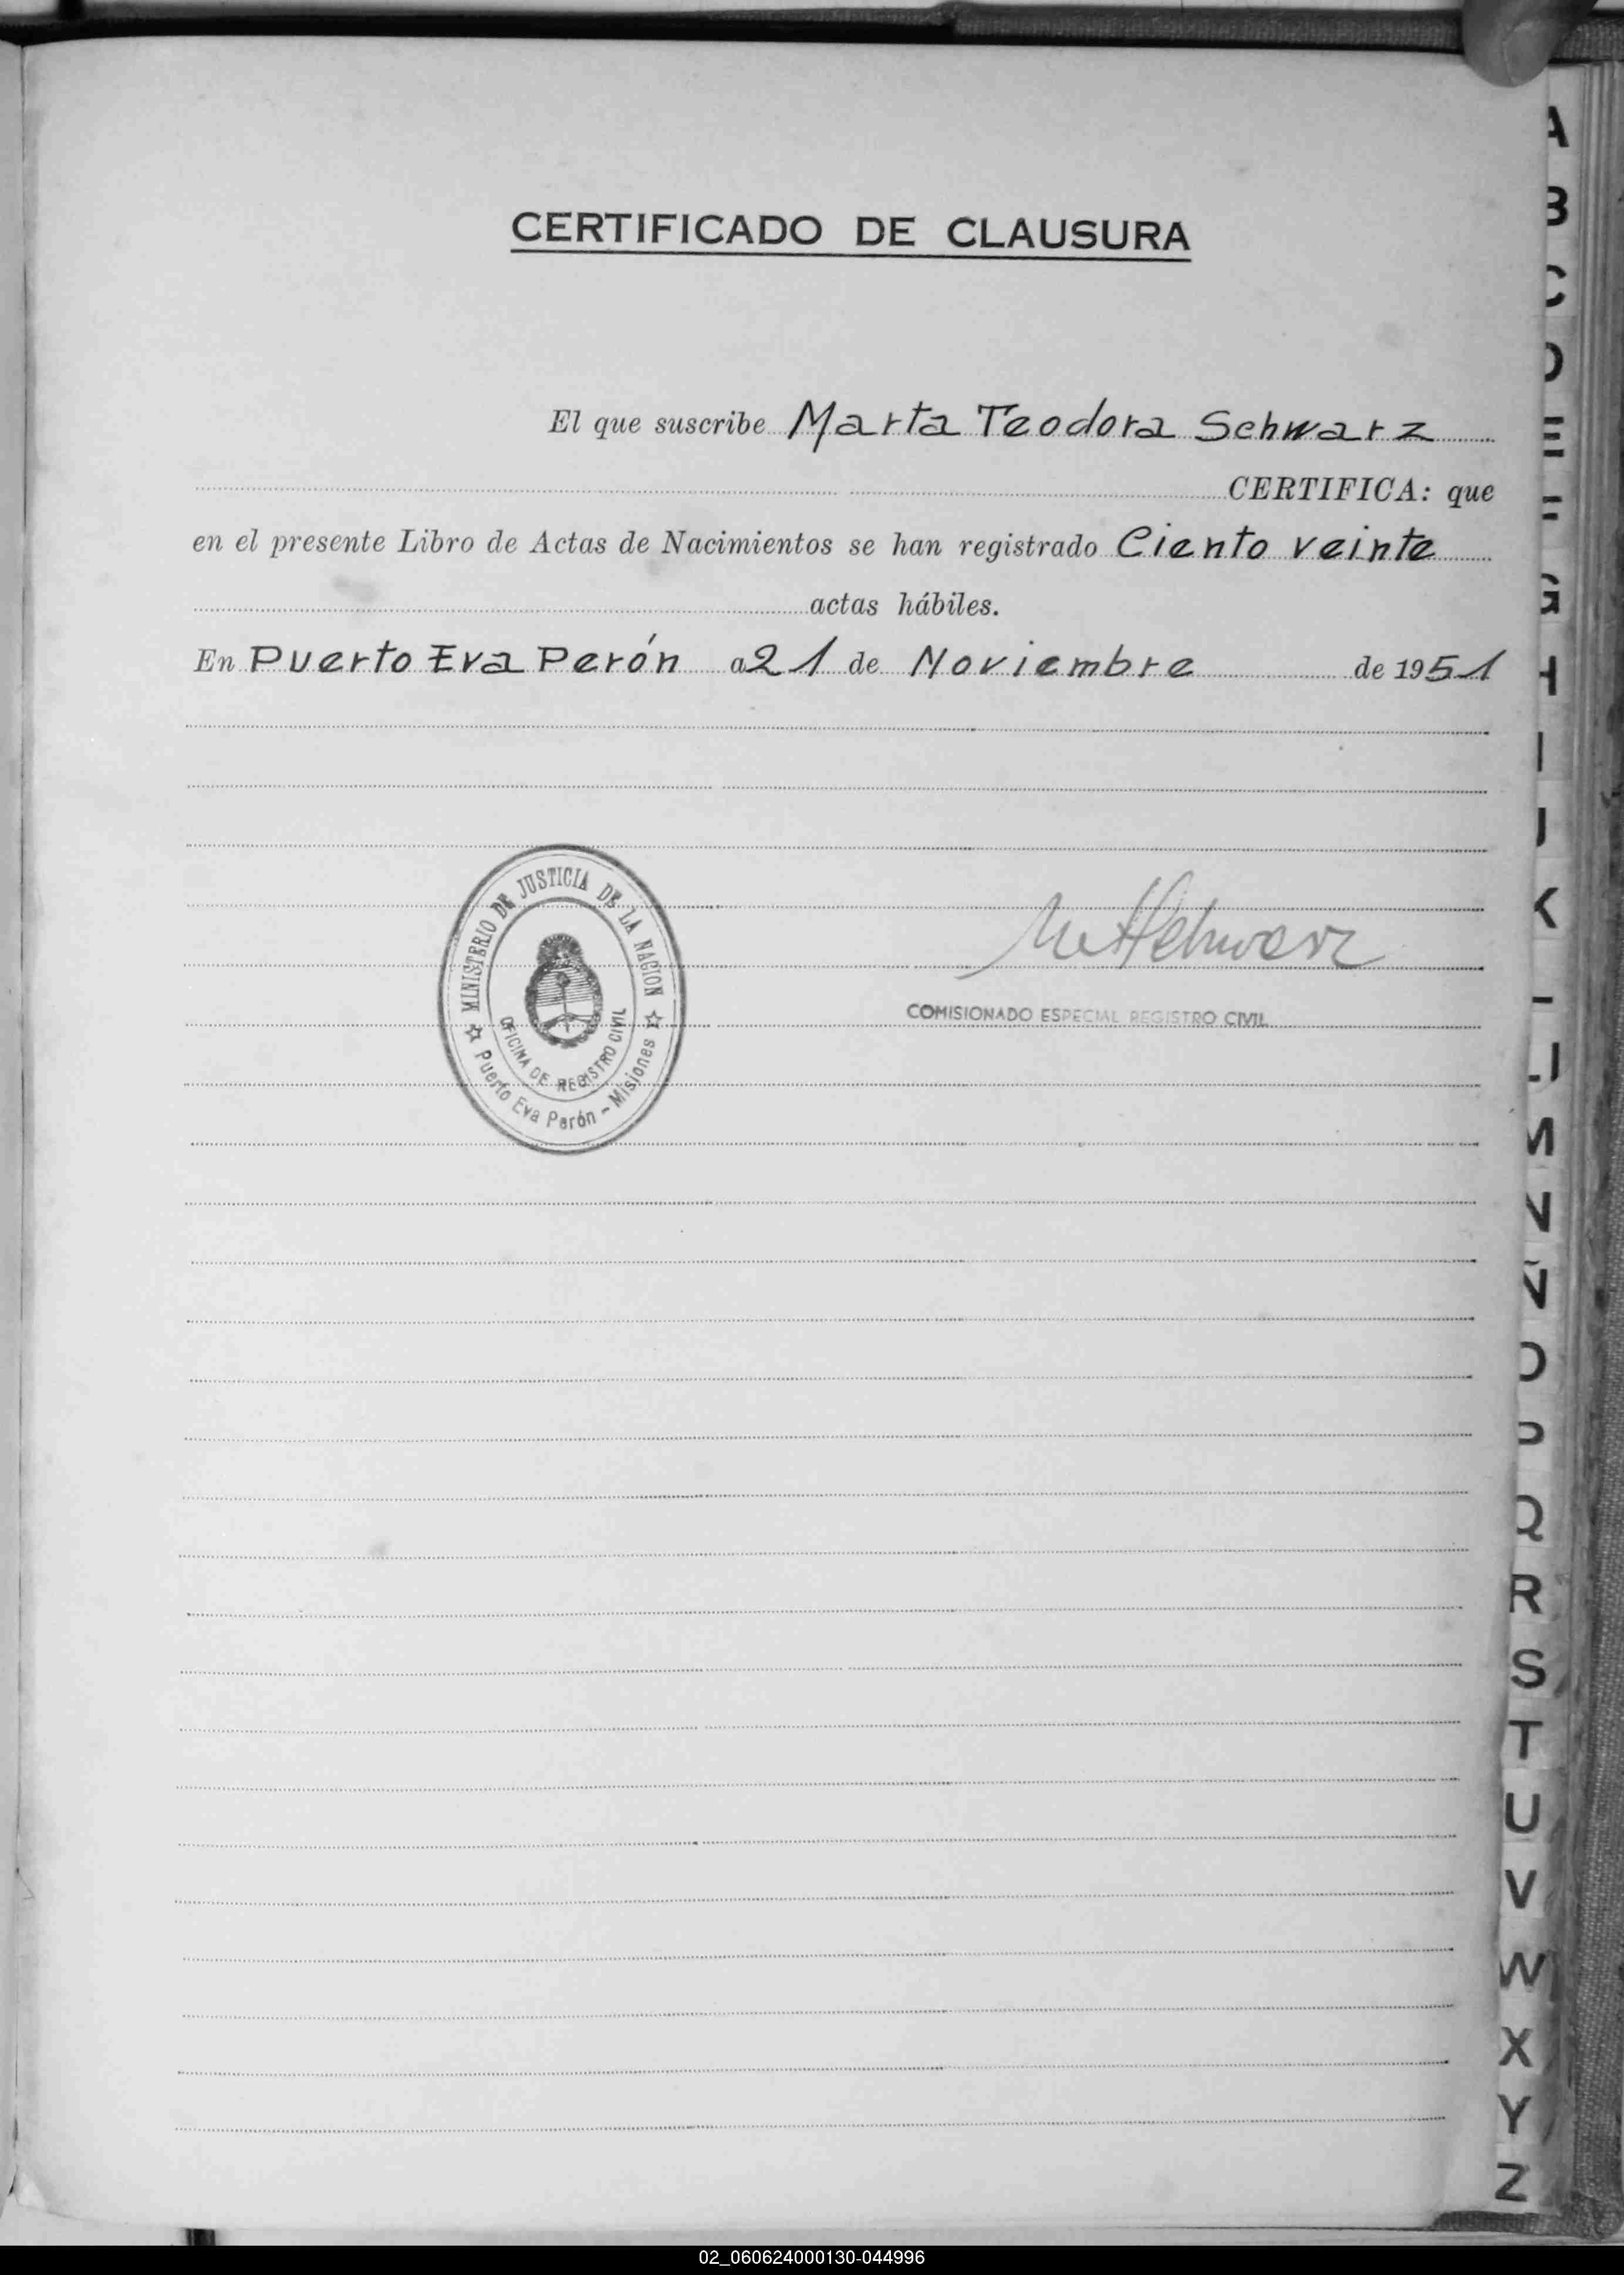 CERTIFICADO DE CLAUSURA
El que suscribe Marta Teodora Schwarz
CERTIFICA: que
en el presente Libro de Actas de Nacimientos se han registrado Ciento veinte
actas hábiles.
En Puerto Eva Perón a 21 de Noviembre de 1951
MINISTERIO DE JUSTICIA DE LA NACION
OFICINA DE REGISTRO CIVIL
Puerto Eva Perón - Misiones
COMISIONADO ESPECIAL REGISTRO CIVIL
A
B
C
D
E
F
G
H
I
J
K
L
LL
M
N
Ñ
O
P
Q
R
S
T
U
V
W
X
Y
Z
02_060624000130-044996